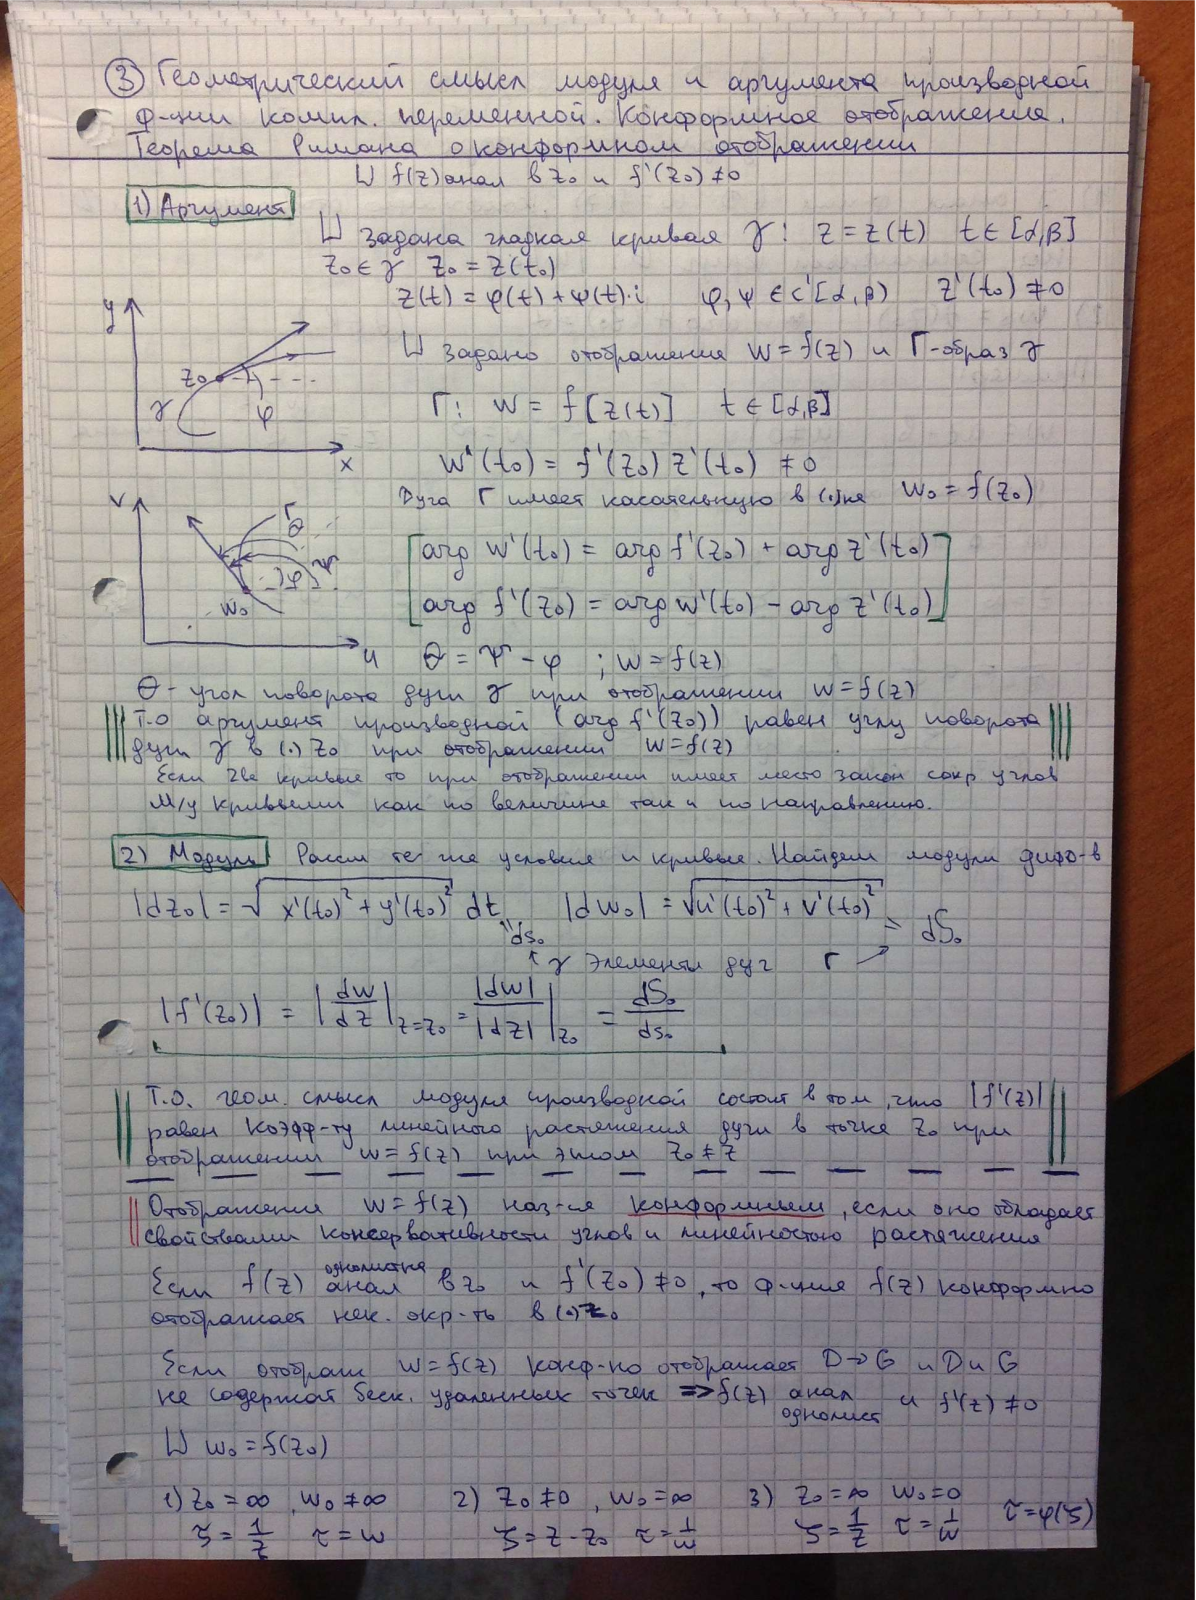 ③ Геометрический смысл модуля и аргумента производной
ф-ции компл. переменной. Конформное отображение.
Теорема Римана о конформном отображении
⊔ f(z) анал в z₀ и f'(z₀) ≠ 0
1) Аргумент
⊔ задана гладкая кривая γ: z = z(t) t ∈ [α,β]
z₀ ∈ γ z₀ = z(t₀)
z(t) = φ(t) + ψ(t)·i φ, ψ ∈ C'[α,β) z'(t₀) ≠ 0
y
z₀
γ
φ
x
⊔ задано отображение w = f(z) и Γ-образ γ
Γ: w = f[z(t)] t ∈ [α,β]
w'(t₀) = f'(z₀) z'(t₀) ≠ 0
Дуга Γ имеет касательную в (·)ке w₀ = f(z₀)
v
Γ
θ
φ
ψ
w₀
u
arg w'(t₀) = arg f'(z₀) + arg z'(t₀)
arg f'(z₀) = arg w'(t₀) − arg z'(t₀)
θ = ψ − φ ; w = f(z)
θ - угол поворота дуги γ при отображении w = f(z)
Т.О аргумент производной (arg f'(z₀)) равен углу поворота
дуги γ в (·) z₀ при отображении w = f(z)
Если две кривые то при отображении имеет место закон сохр углов
м/у кривыми как по величине так и по направлению.
2) Модуль Рассм те же условия и кривые. Найдем модули дифф-в
|dz₀| = √(x'(t₀)² + y'(t₀)²) dt |dw₀| = √(u'(t₀)² + v'(t₀)²) = dS₀
" ds₀
↑ γ Элементы дуг Γ ↗
|f'(z₀)| = |dw/dz|_{z=z₀} = |dw|/|dz| |_{z₀} = dS₀/ds₀
Т.О. геом. смысл модуля производной состоит в том, что |f'(z)|
равен коэфф-ту линейного растяжения дуги в точке z₀ при
отображении w = f(z) при этом z₀ ≠ z
Отображение w = f(z) наз-ся конформным, если оно обладает
свойствами консервативности углов и линейностью растяжения
Если f(z) однолистна анал в z₀ и f'(z₀) ≠ 0, то ф-ция f(z) конформно
отображает нек. окр-ть в (·) z₀
Если отображ w = f(z) конф-но отображает D→G и D и G
не содержат беск. удаленных точек ⇒ f(z) анал однолист и f'(z) ≠ 0
⊔ w₀ = f(z₀)
1) z₀ = ∞, w₀ ≠ ∞ 2) z₀ ≠ 0, w₀ = ∞ 3) z₀ = ∞ w₀ = 0
ζ = 1/z τ = w ζ = z - z₀ τ = 1/w ζ = 1/z τ = 1/w τ = φ(ζ)